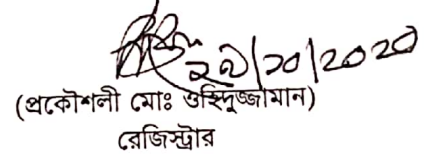 ২৯/১০/২০২০
(প্রকৌশলী মোঃ ওহিদুজ্জামান)
রেজিস্ট্রার